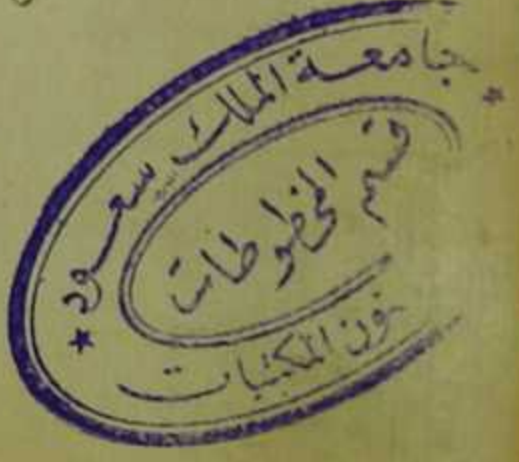 جامعة الملك سعود
قسم المخطوطات
ون المكتبات